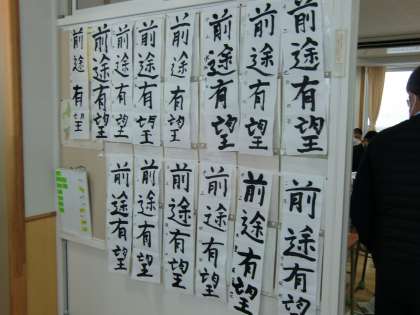 前途有望
前途有望
前途有望
前途有望
前途有望
前途有望
前途有望
前途有望
前途有望
前途有望
前途有望
前途有望
前途有望
前途有望